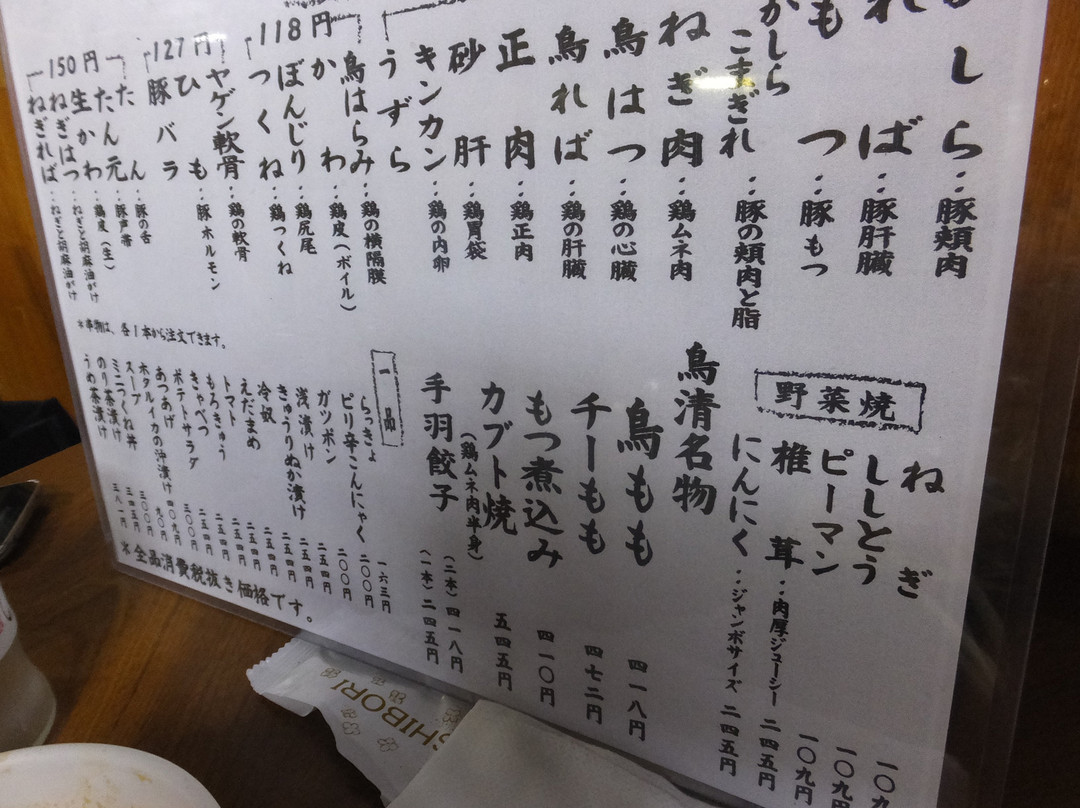 しら：豚頬肉
れば：豚肝臓
もつ：豚もつ
かしら
こまぎれ：豚の頬肉と脂
ねぎ肉：鶏ムネ肉
鳥はつ：鶏の心臓
鳥れば：鶏の肝臓
正肉：鶏正肉
砂肝：鶏胃袋
キンカン：鶏の内卵
うずら
118円
鳥はらみ：鶏の横隔膜
かわ：鶏皮（ボイル）
ぼんじり：鶏尻尾
つくね：鶏つくね
127円
ヤゲン軟骨：鶏の軟骨
ひも：豚ホルモン
豚バラ
150円
たん：豚の舌
たん元：豚声帯
生かわ：鶏皮（生）
ねぎはつ：ねぎと胡麻油がけ
ねぎれば：ねぎと胡麻油がけ
＊串物は、各1本から注文できます。
野菜焼
ねぎ 一〇九
ししとう 一〇九円
ピーマン 一〇九円
椎茸：肉厚ジューシー 二四五円
にんにく：ジャンボサイズ 二四五円
鳥清名物
鳥もも 四一八円
チーもも 四七二円
もつ煮込み 四一〇円
カブト焼 五四五円
（鶏ムネ肉半身）
手羽餃子 （二本）四一八円
（一本）二四五円
一品
らっきょ 一六三円
ピリ辛こんにゃく 二〇〇円
ガツポン 二〇〇円
浅漬け 二五四円
きゅうりぬか漬け 二五四円
冷奴 二五四円
えだまめ 二五四円
トマト 二五四円
もろきゅう 二五四円
きゃべつ 二五四円
ポテトサラダ 二五四円
あつあげ 三〇〇円
ホタルイカの沖漬け 四〇九円
スープ 九〇円
ミニつくね丼 三〇〇円
のり茶漬け 三四五円
うめ茶漬け 三八一円
＊全品消費税抜き価格です。
SHIBORI